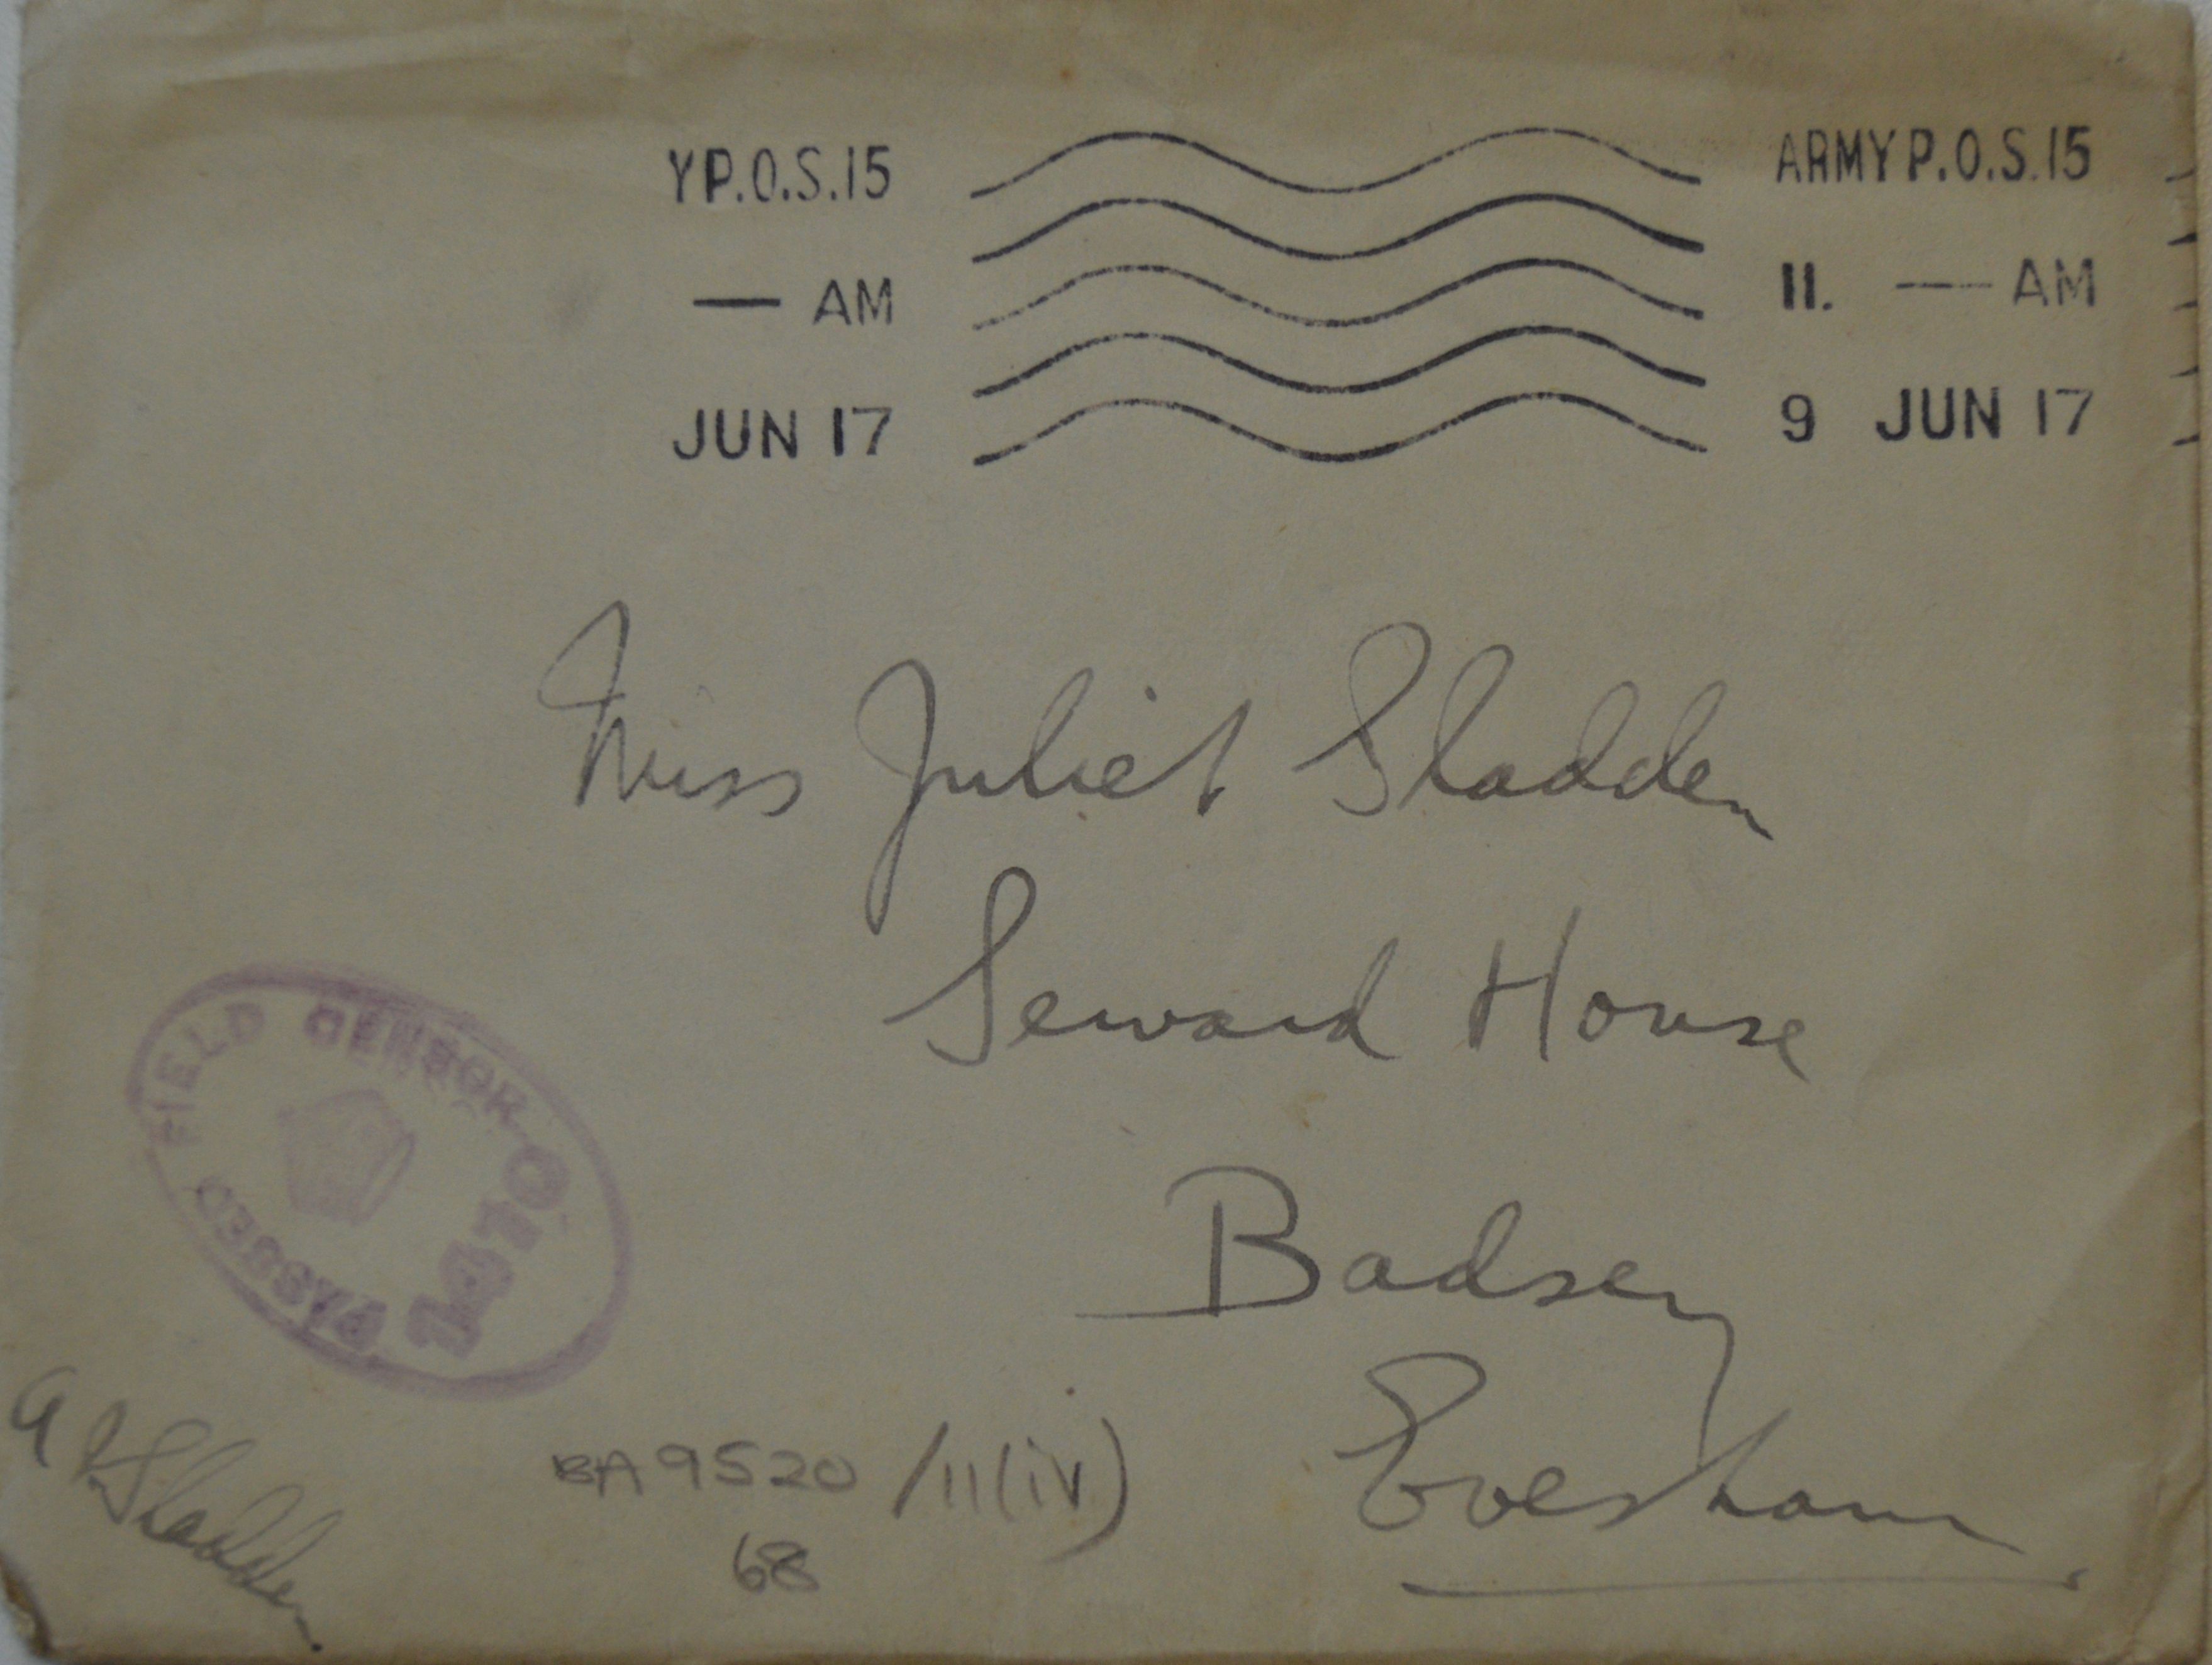 YP.O.S.15 ARMY P.O.S.15
— AM 11. — AM
JUN 17 9 JUN 17
Miss Juliet Sladden
Seward House
Badsey
Evesham
FIELD CENSOR
PASSED
A Sladden
BA 9520/11(iv)
68